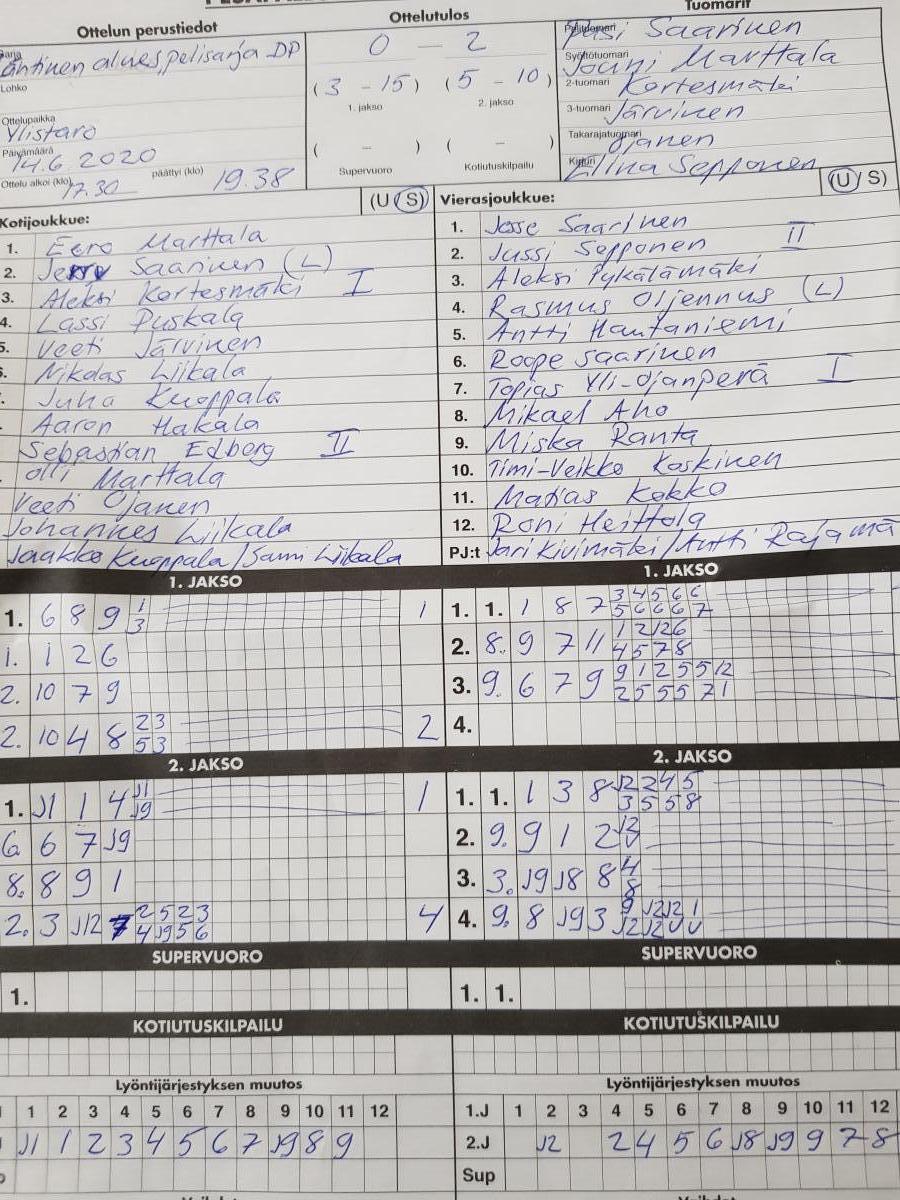 Ottelun perustiedot
Ottelutulos
Tuomarit
alnespelisarja DP
Lohko
Ottelupaikka
Ylistaro
Päivämäärä
14.6 2020
Ottelu alkoi (klo) 17.30 päättyi (klo) 19.38
0 - 2
(3 - 15) (5 - 10)
1. jakso 2. jakso
( - ) ( - )
Supervuoro Kotiutuskilpailu
Pelituomari Pasi Saarinen
Syöttötuomari Jouni Marttala
2-tuomari Kortesmäki
3-tuomari Järvinen
Takarajatuomari Ojanen
Kirjuri Elina Sepponen
Kotijoukkue: (U S)
1. Eero Marttala
2. Jerry Saarinen (L)
3. Aleksi Kortesmäki I
4. Lassi Puskala
5. Veeti Järvinen
Nikolas Liikala
Juha Kuoppala
Aaron Hakala
Sebastian Edberg II
Olli Marttala
Veeti Ojanen
Johannes Liikala
Jaakko Kuoppala/Sami Liikala
Vierasjoukkue: (U/S)
1. Josse Saarinen
2. Jussi Sepponen II
3. Aleksi Pykälämäki
4. Rasmus Oljennus (L)
5. Antti Hautaniemi
6. Roope Saarinen
7. Topias Yli-Ojanperä I
8. Mikael Aho
9. Miska Ranta
10. Timi-Veikko Koskinen
11. Matias Kokko
12. Roni Heittola
PJ:t Jari Kivimäki/Antti Rajamä
1. JAKSO
1. 6 8 9 1 1
3
1. 1 2 6
2. 10 7 9
2. 10 4 8 23 2
53
1. JAKSO
1. 1. 1 8 7 3 4 5 6 6
5 6 6 6 7
2. 8. 9 7 11 1 2 12 6
4 5 7 8
3. 9. 6 7 9 9 1 2 5 5 12
2 5 5 5 7 1
4.
2. JAKSO
1. J1 1 4 J1 1
J9
6. 6 7 J9
8. 8 9 1
2. 3 J12 7 2 5 2 3 4
4 J9 5 6
2. JAKSO
1. 1. 1 3 8 J2 2 4 5
3 5 5 8
2. 9. 9 1 2 J2
3. 3. J9 J8 8 4
8
4. 9. 8 J9 3 9 J2 J2 1
J2 J2
SUPERVUORO
1.
SUPERVUORO
1. 1.
KOTIUTUSKILPAILU
KOTIUTUSKILPAILU
Lyöntijärjestyksen muutos
1 2 3 4 5 6 7 8 9 10 11 12
J1 1 2 3 4 5 6 7 J9 8 9
Lyöntijärjestyksen muutos
1.J 1 2 3 4 5 6 7 8 9 10 11 12
2.J J2 2 4 5 6 J8 J9 9 7 8
Sup